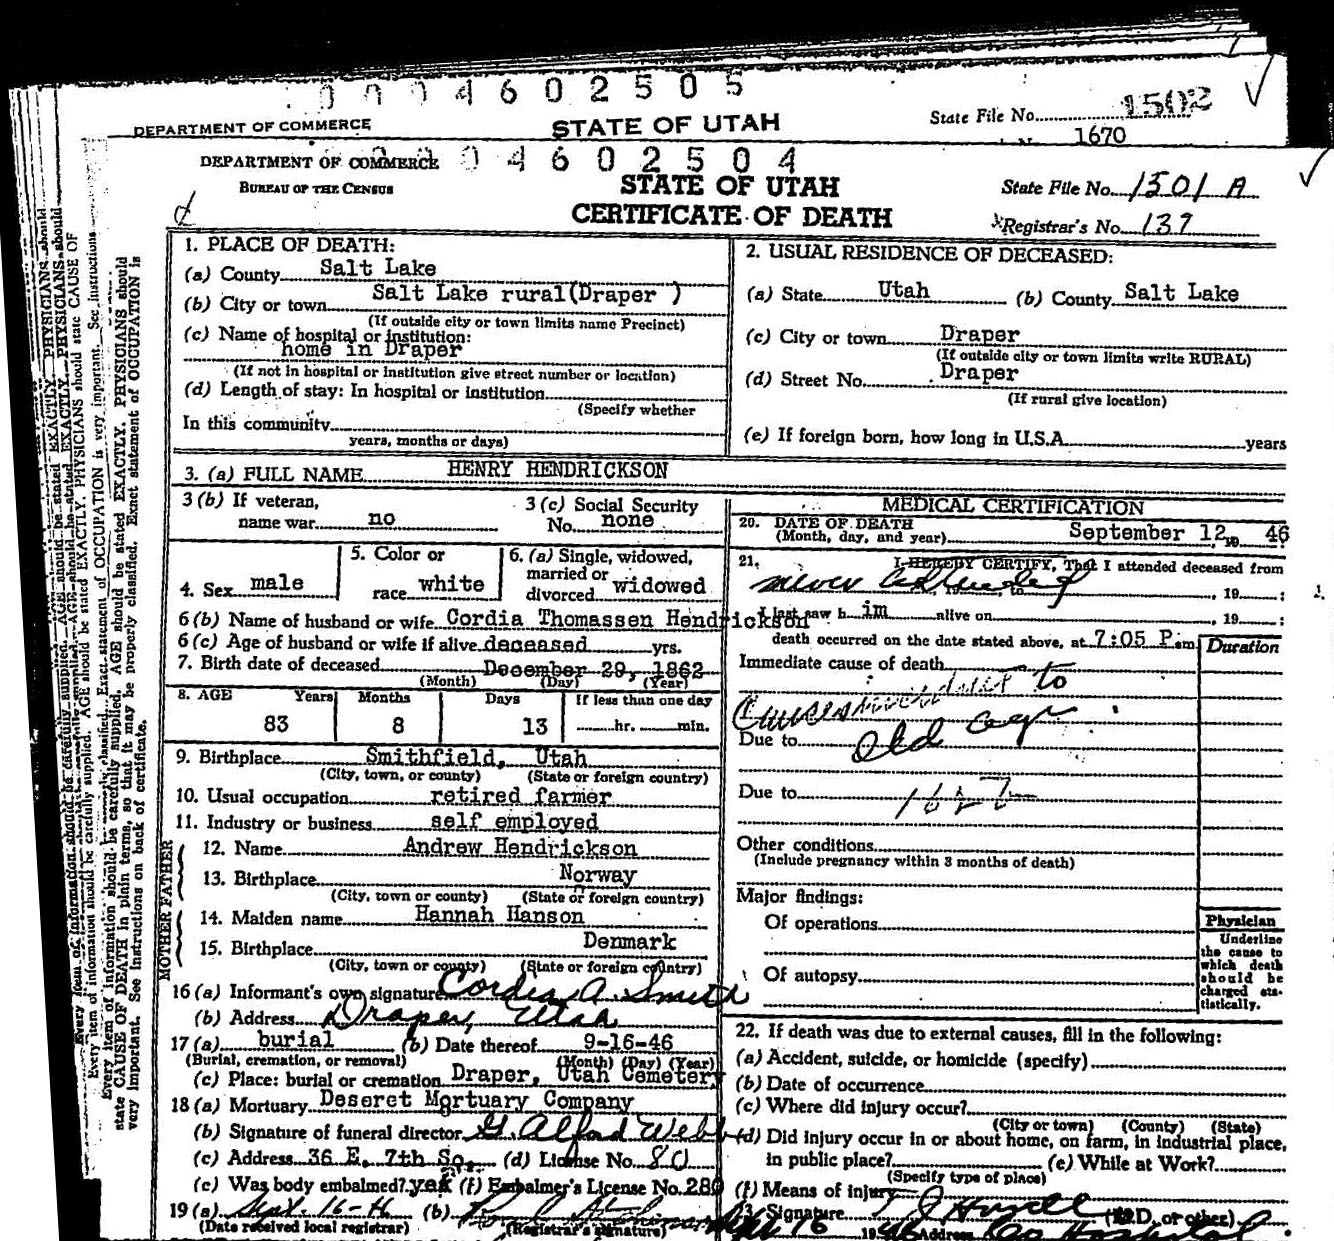 0004602505
DEPARTMENT OF COMMERCE
STATE OF UTAH
State File No. 1502
1670
04602504
DEPARTMENT OF COMMERCE
BUREAU OF THE CENSUS
STATE OF UTAH
CERTIFICATE OF DEATH
State File No. 1501 A
Registrar's No. 137
1. PLACE OF DEATH:
(a) County Salt Lake
(b) City or town Salt Lake rural(Draper )
(If outside city or town limits name Precinct)
(c) Name of hospital or institution:
home in Draper
(If not in hospital or institution give street number or location)
(d) Length of stay: In hospital or institution
(Specify whether
In this community
years, months or days)
2. USUAL RESIDENCE OF DECEASED:
(a) State Utah (b) County Salt Lake
(c) City or town Draper
(If outside city or town limits write RURAL)
(d) Street No. Draper
(If rural give location)
(e) If foreign born, how long in U.S.A. years
3. (a) FULL NAME HENRY HENDRICKSON
3 (b) If veteran,
name war no
3 (c) Social Security
No. none
4. Sex male
5. Color or
race white
6. (a) Single, widowed,
married or
divorced widowed
6 (b) Name of husband or wife Cordia Thomassen Hendrickson
6 (c) Age of husband or wife if alive deceased yrs.
7. Birth date of deceased December 29, 1862
(Month) (Day) (Year)
8. AGE Years Months Days If less than one day
83 8 13 hr. min.
9. Birthplace Smithfield, Utah
(City, town, or county) (State or foreign country)
10. Usual occupation retired farmer
11. Industry or business self employed
FATHER
12. Name Andrew Hendrickson
13. Birthplace Norway
(City, town or county) (State or foreign country)
MOTHER
14. Maiden name Hannah Hanson
15. Birthplace Denmark
(City, town or county) (State or foreign country)
16 (a) Informant's own signature Cordia A. Smith
(b) Address Draper, Utah
17 (a) burial (b) Date thereof 9-16-46
(Burial, cremation, or removal) (Month) (Day) (Year)
(c) Place: burial or cremation Draper, Utah Cemetery
18 (a) Mortuary Deseret Mortuary Company
(b) Signature of funeral director G. Alfred Webb
(c) Address 36 E. 7th So. (d) License No. 80
(e) Was body embalmed? yes (f) Embalmer's License No. 280
19 (a) Sept. 16-46 (b)
(Date received local registrar) (Registrar's signature)
MEDICAL CERTIFICATION
20. DATE OF DEATH
(Month, day, and year) September 12, 19 46
21. I HEREBY CERTIFY, That I attended deceased from
never attended to , 19 ;
I last saw h im alive on , 19 ;
death occurred on the date stated above, at 7:05 P. m
Duration
Immediate cause of death
Causes incident to
Due to old age
Due to 162
Other conditions
(Include pregnancy within 3 months of death)
Major findings:
Of operations
Of autopsy
Physician
Underline
the cause to
which death
should be
charged sta-
tistically.
22. If death was due to external causes, fill in the following:
(a) Accident, suicide, or homicide (specify)
(b) Date of occurrence
(c) Where did injury occur?
(City or town) (County) (State)
(d) Did injury occur in or about home, on farm, in industrial place,
in public place? (e) While at Work?
(Specify type of place)
(f) Means of injury
23. Signature (M.D. or other)
Sept 16 1946 Address
Every item of information should be carefully supplied. AGE should be stated EXACTLY. PHYSICIANS should
state CAUSE OF DEATH in plain terms, so that it may be properly classified. Exact statement of OCCUPATION is
very important. See instructions on back of certificate.